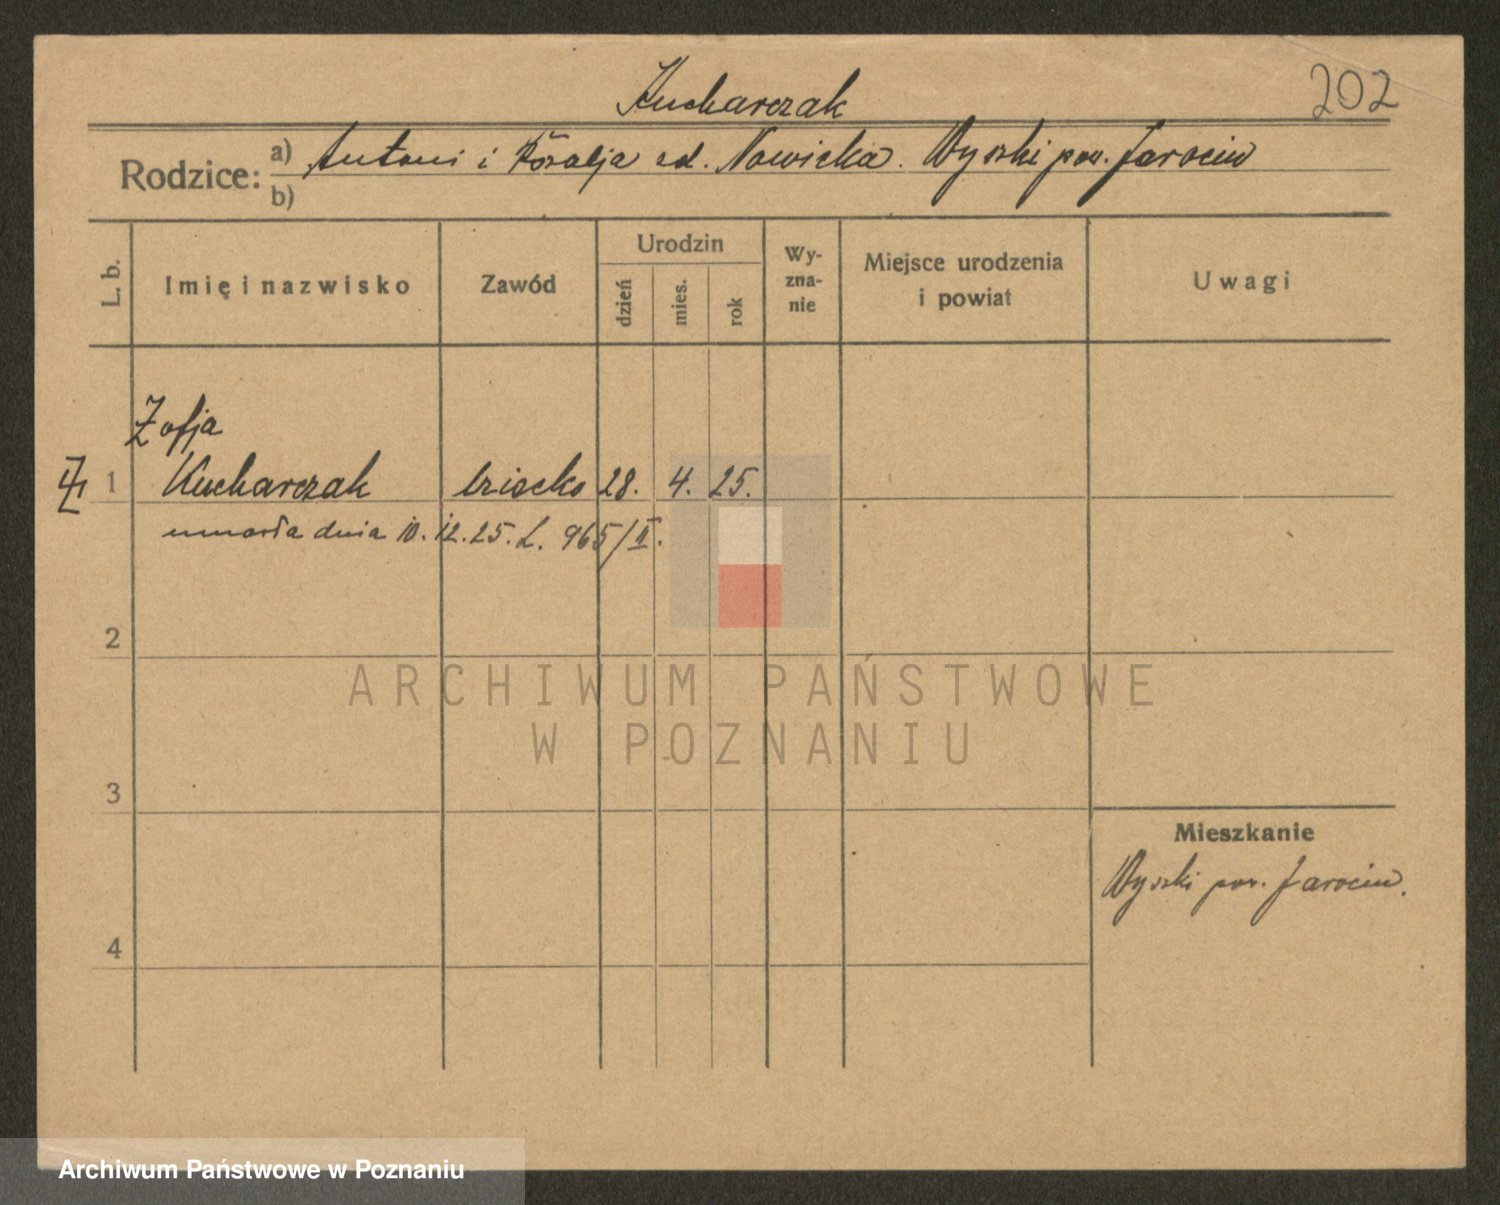 202
Kucharczak
Rodzice: a) Antoni i Rózalja zd. Nowicka. Wyszki pow. Jarocin
b)
L. b. Imię i nazwisko Zawód Urodzin dzień mies. rok Wy-zna-nie Miejsce urodzenia i powiat Uwagi
Zofja
1 Kucharczak dziecko 28. 4. 25.
umarła dnia 10. 12. 25. L. 965/II.
2
ARCHIWUM PAŃSTWOWE
W POZNANIU
3
Mieszkanie
Wyszki pow. Jarocin.
4
Archiwum Państwowe w Poznaniu